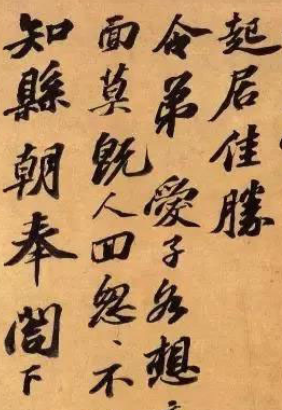 起居佳勝
令弟愛子各想
面莫既人回怱〻不
知縣朝奉閤下